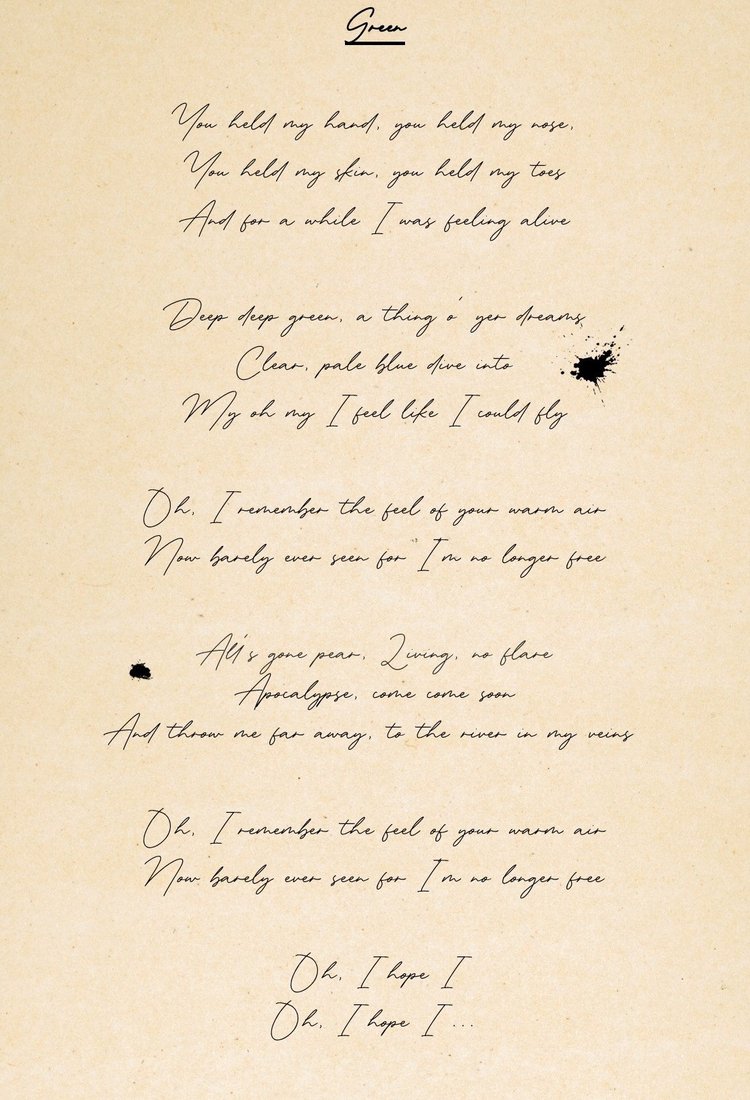 Green
You held my hand, you held my nose,
You held my skin, you held my toes
And for a while I was feeling alive
Deep deep green, a thing o' yer dreams
Clear, pale blue dive into
My oh my I feel like I could fly
Oh, I remember the feel of your warm air
Now barely ever seen for I'm no longer free
All's gone pear, Living, no flare
Apocalypse, come come soon
And throw me far away, to the river in my veins
Oh, I remember the feel of your warm air
Now barely ever seen for I'm no longer free
Oh, I hope I
Oh, I hope I ...